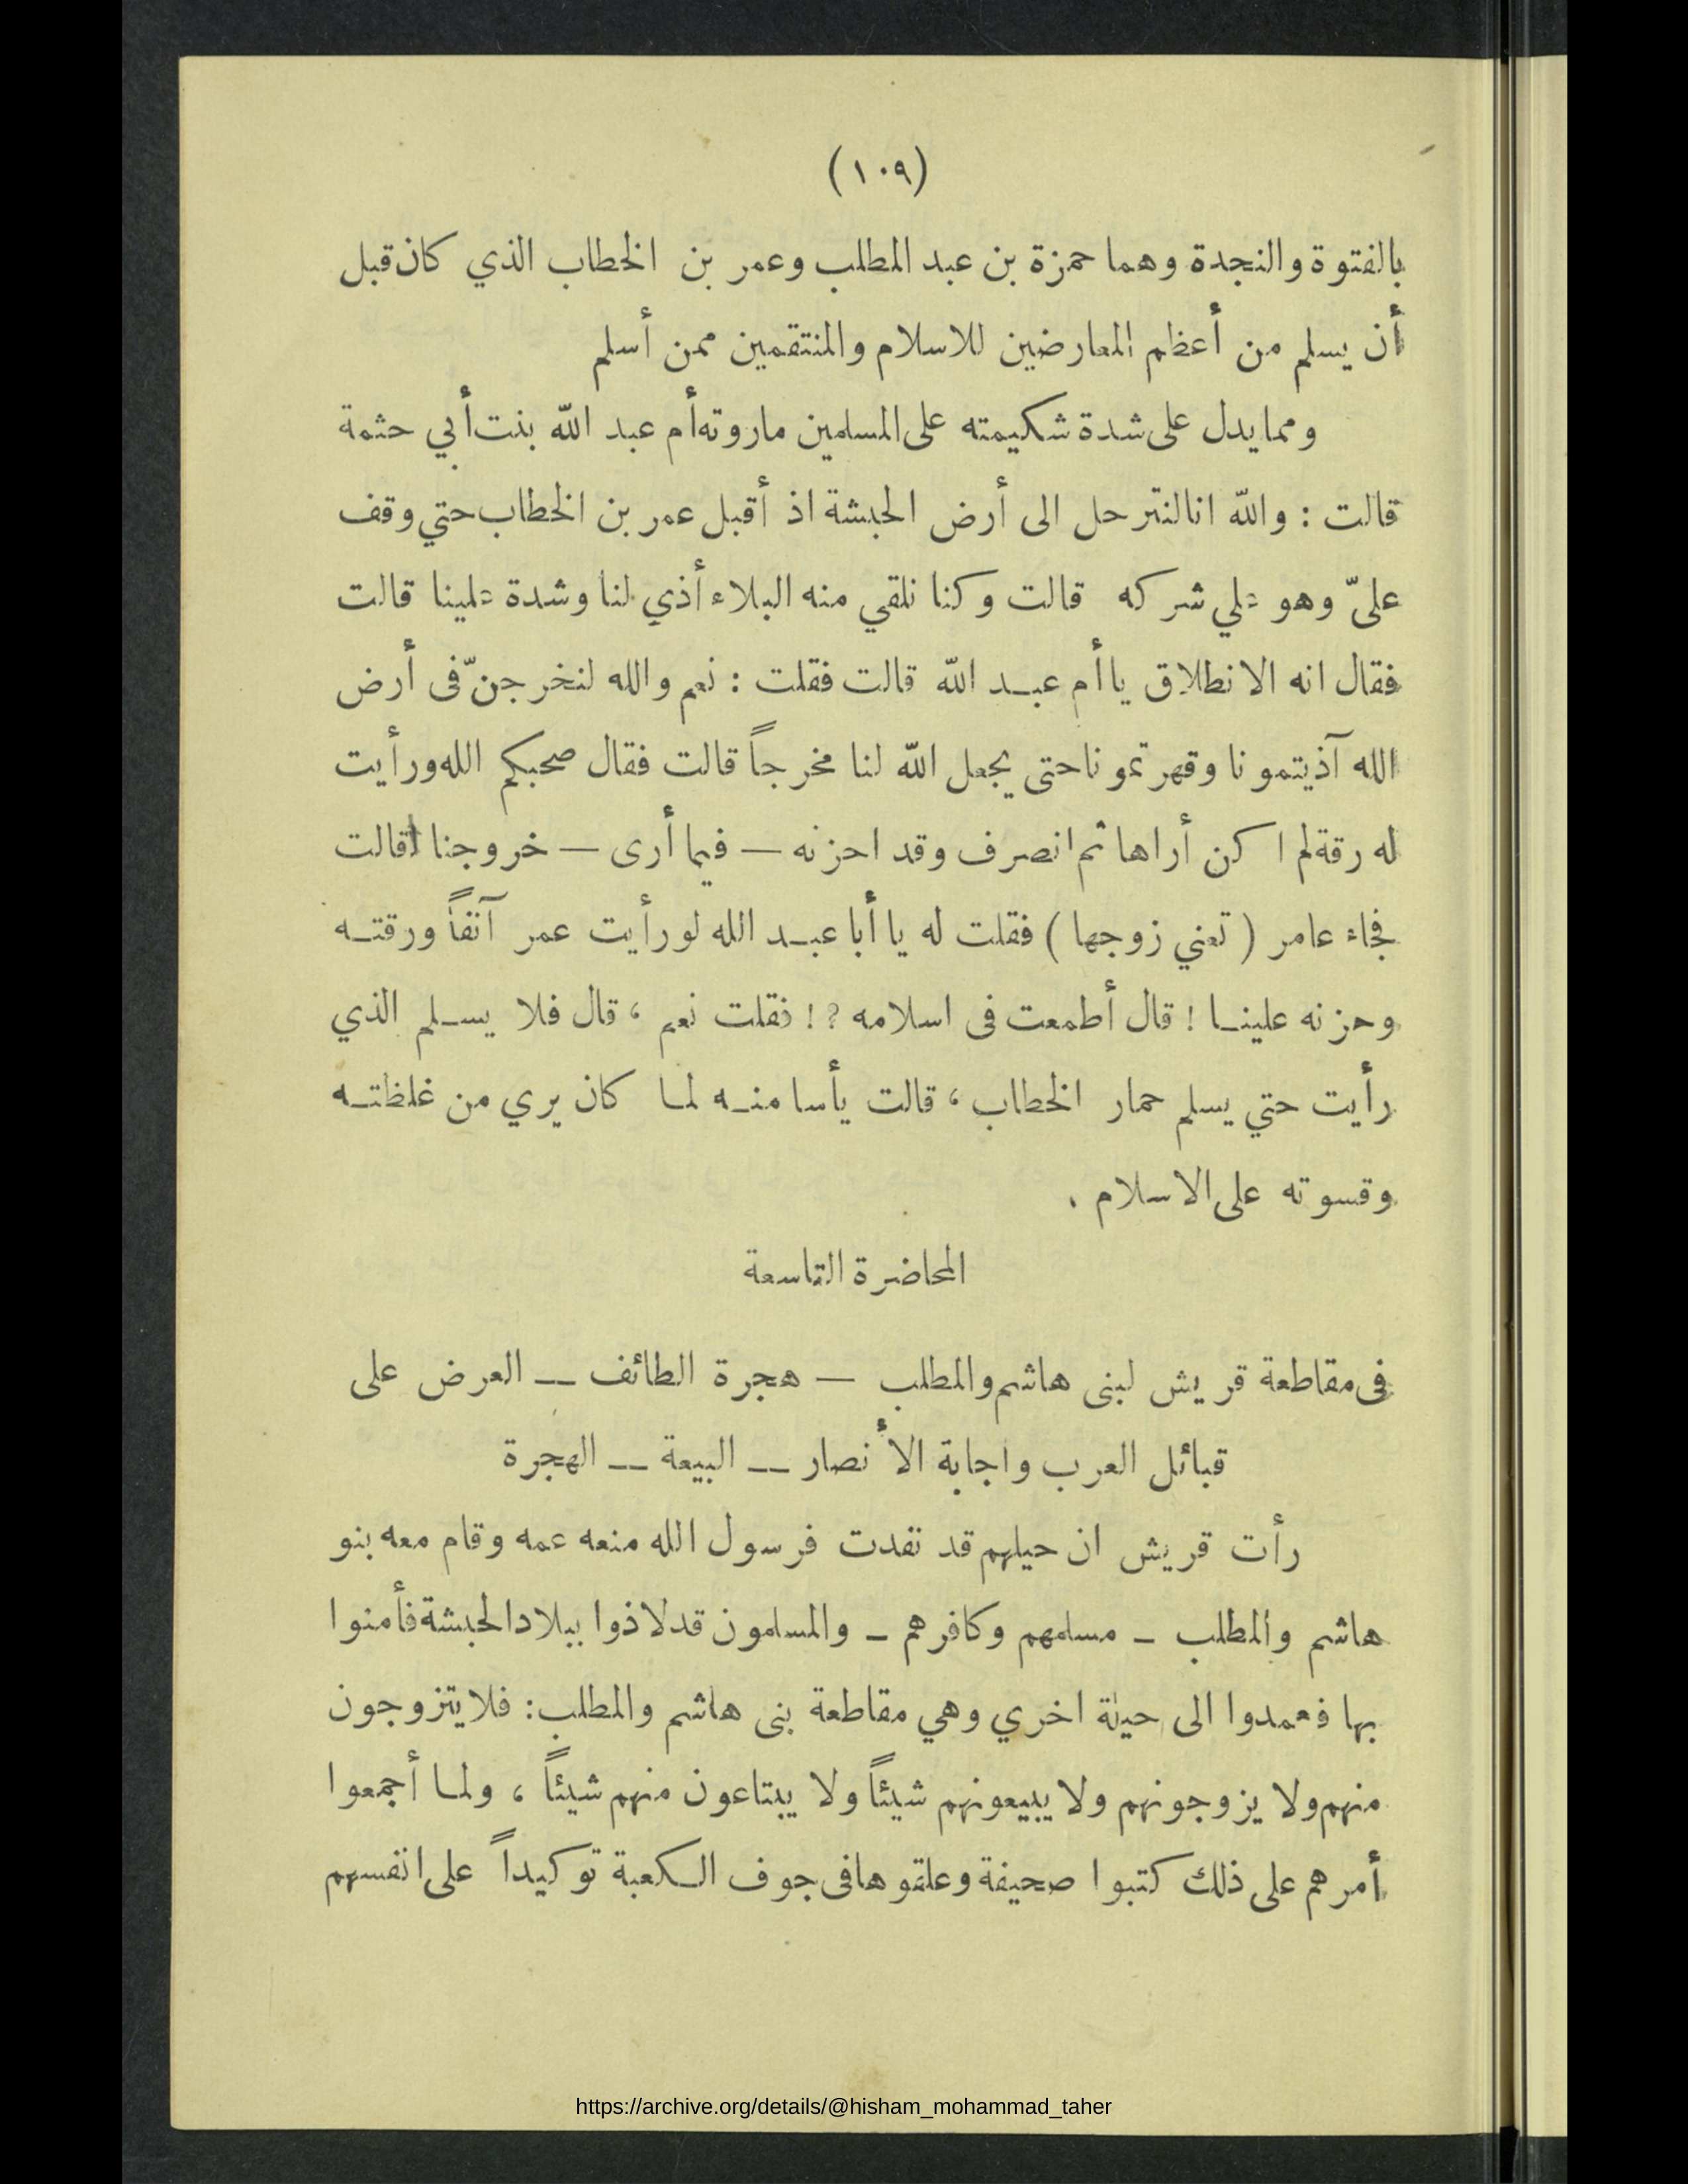 (١٠٩)
بالفتوة والنجدة وهما حمزة بن عبد المطلب وعمر بن الخطاب الذي كان قبل
أن يسلم من أعظم المعارضين للاسلام والمنتقمين ممن أسلم
ومما يدل على شدة شكيمته على المسلمين ماروته أم عبد الله بنت أبي حثمة
قالت : والله انا لنترحل الى أرض الحبشة اذ أقبل عمر بن الخطاب حتي وقف
عليّ وهو علي شركه قالت وكنا نلقي منه البلاء أذي لنا وشدة علينا قالت
فقال انه الانطلاق يا أم عبد الله قالت فقلت : نعم والله لنخرجنّ فى أرض
الله آذيتمونا وقهرتمونا حتى يجعل الله لنا مخرجاً قالت فقال صحبكم الله ورأيت
له رقة لم اكن أراها ثم انصرف وقد احزنه — فيما أرى — خروجنا قالت
فجاء عامر ( تعني زوجها ) فقلت له يا أبا عبد الله لو رأيت عمر آنفاً ورقته
وحزنه علينا ! قال أطمعت فى اسلامه ?! فقلت نعم ، قال فلا يسلم الذي
رأيت حتي يسلم حمار الخطاب ، قالت يأسا منه لما كان يري من غلظته
وقسوته على الاسلام .
المحاضرة التاسعة
فى مقاطعة قريش لبنى هاشم والمطلب — هجرة الطائف — العرض على
قبائل العرب واجابة الأنصار — البيعة — الهجرة
رأت قريش ان حيلهم قد نفدت فرسول الله منعه عمه وقام معه بنو
هاشم والمطلب – مسلمهم وكافرهم – والمسلمون قد لاذوا ببلاد الحبشة فأمنوا
بها فعمدوا الى حيلة اخري وهي مقاطعة بنى هاشم والمطلب : فلا يتزوجون
منهم ولا يزوجونهم ولا يبيعونهم شيئاً ولا يبتاعون منهم شيئاً ، ولما أجمعوا
أمرهم على ذلك كتبوا صحيفة وعلقوها فى جوف الكعبة توكيداً على انفسهم
https://archive.org/details/@hisham_mohammad_taher